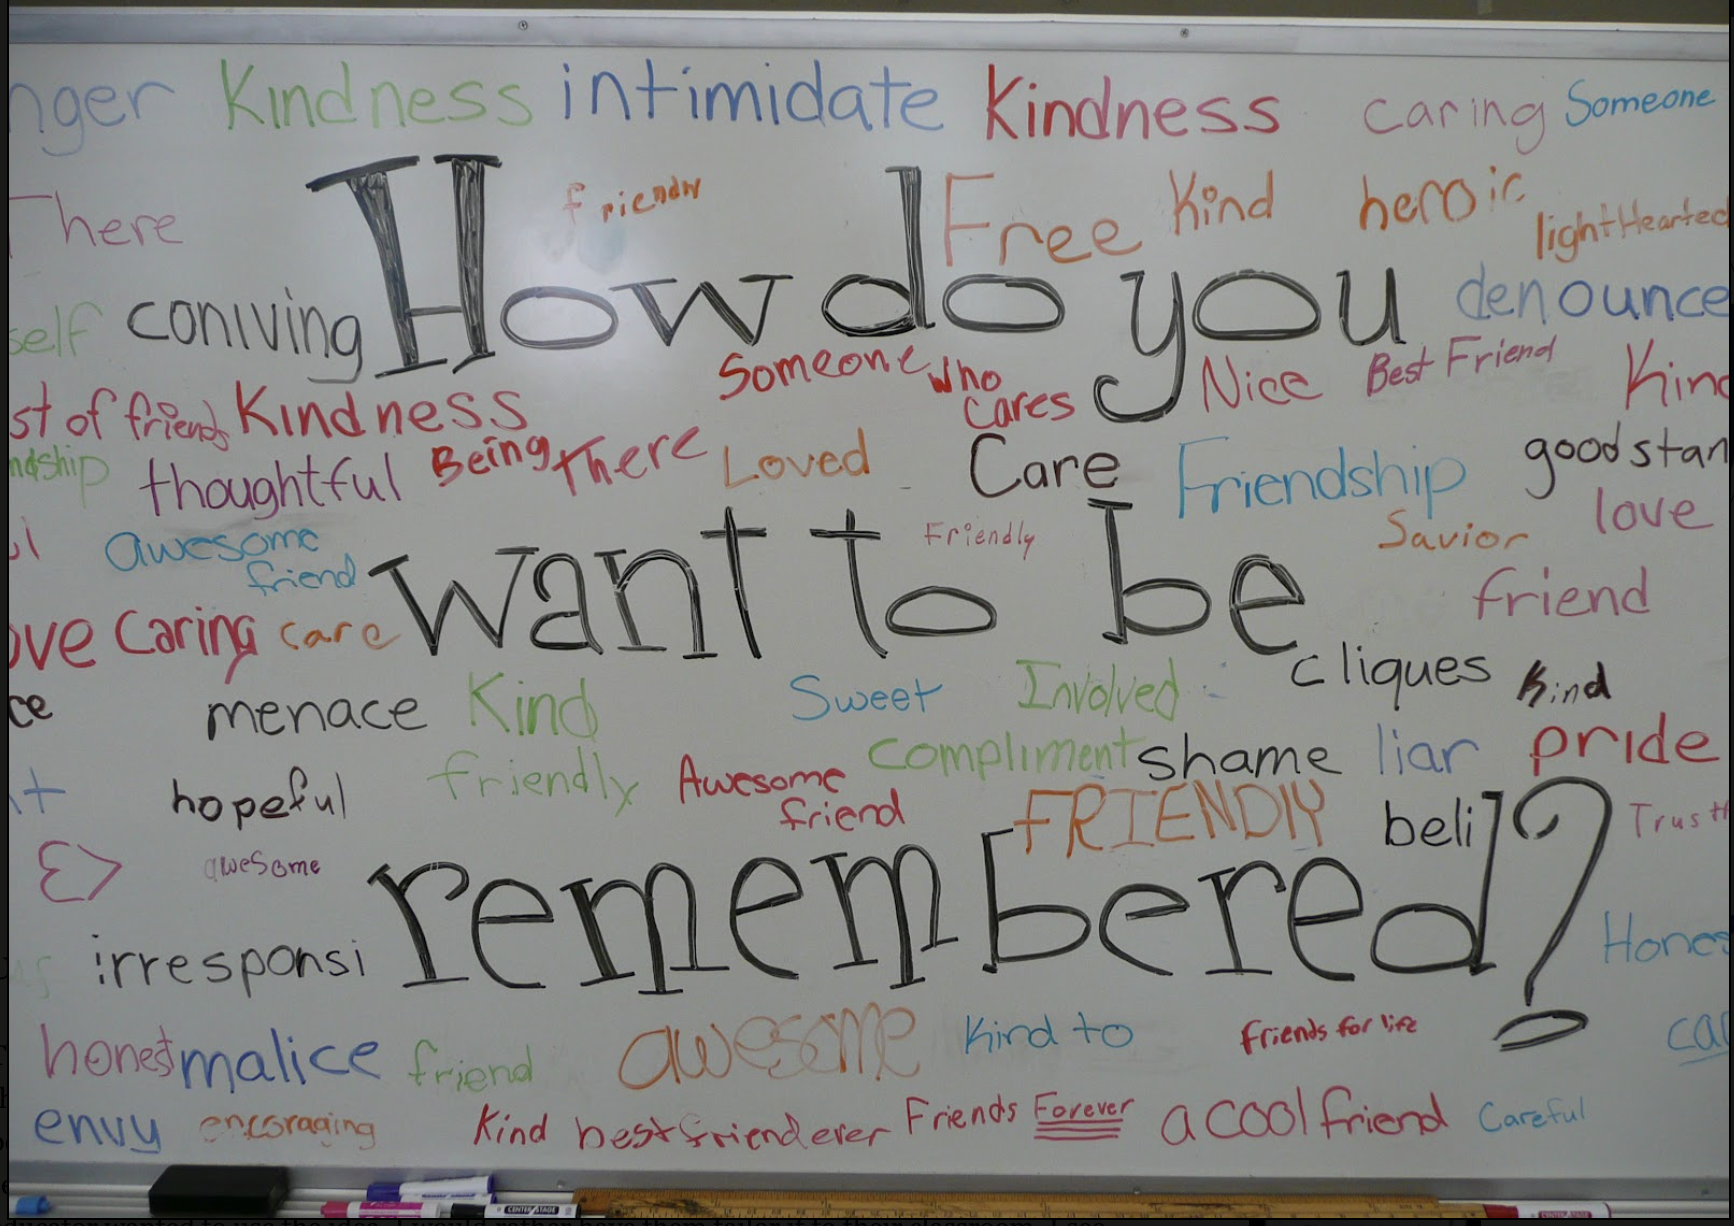 nger Kindness intimidate Kindness caring Someone
There friendly Free Kind heroic lightHearted
self coniving How do you denounce
Someone who cares Nice Best Friend Kind
st of friends Kindness
ndship thoughtful Being There Loved Care Friendship good stan
love
awesome friend want to be Friendly Savior
friend
ove Caring care
cliques Kind
ce menace Kind Sweet Involved
compliment shame liar pride
hopeful friendly Awesome friend FRIENDlY beli Trust
awesome remembered?
irresponsi Hones
honest malice friend awesome Kind to friends for life ca
envy encoraging Kind best friend ever Friends Forever a cool friend Careful
CENTER STAGE